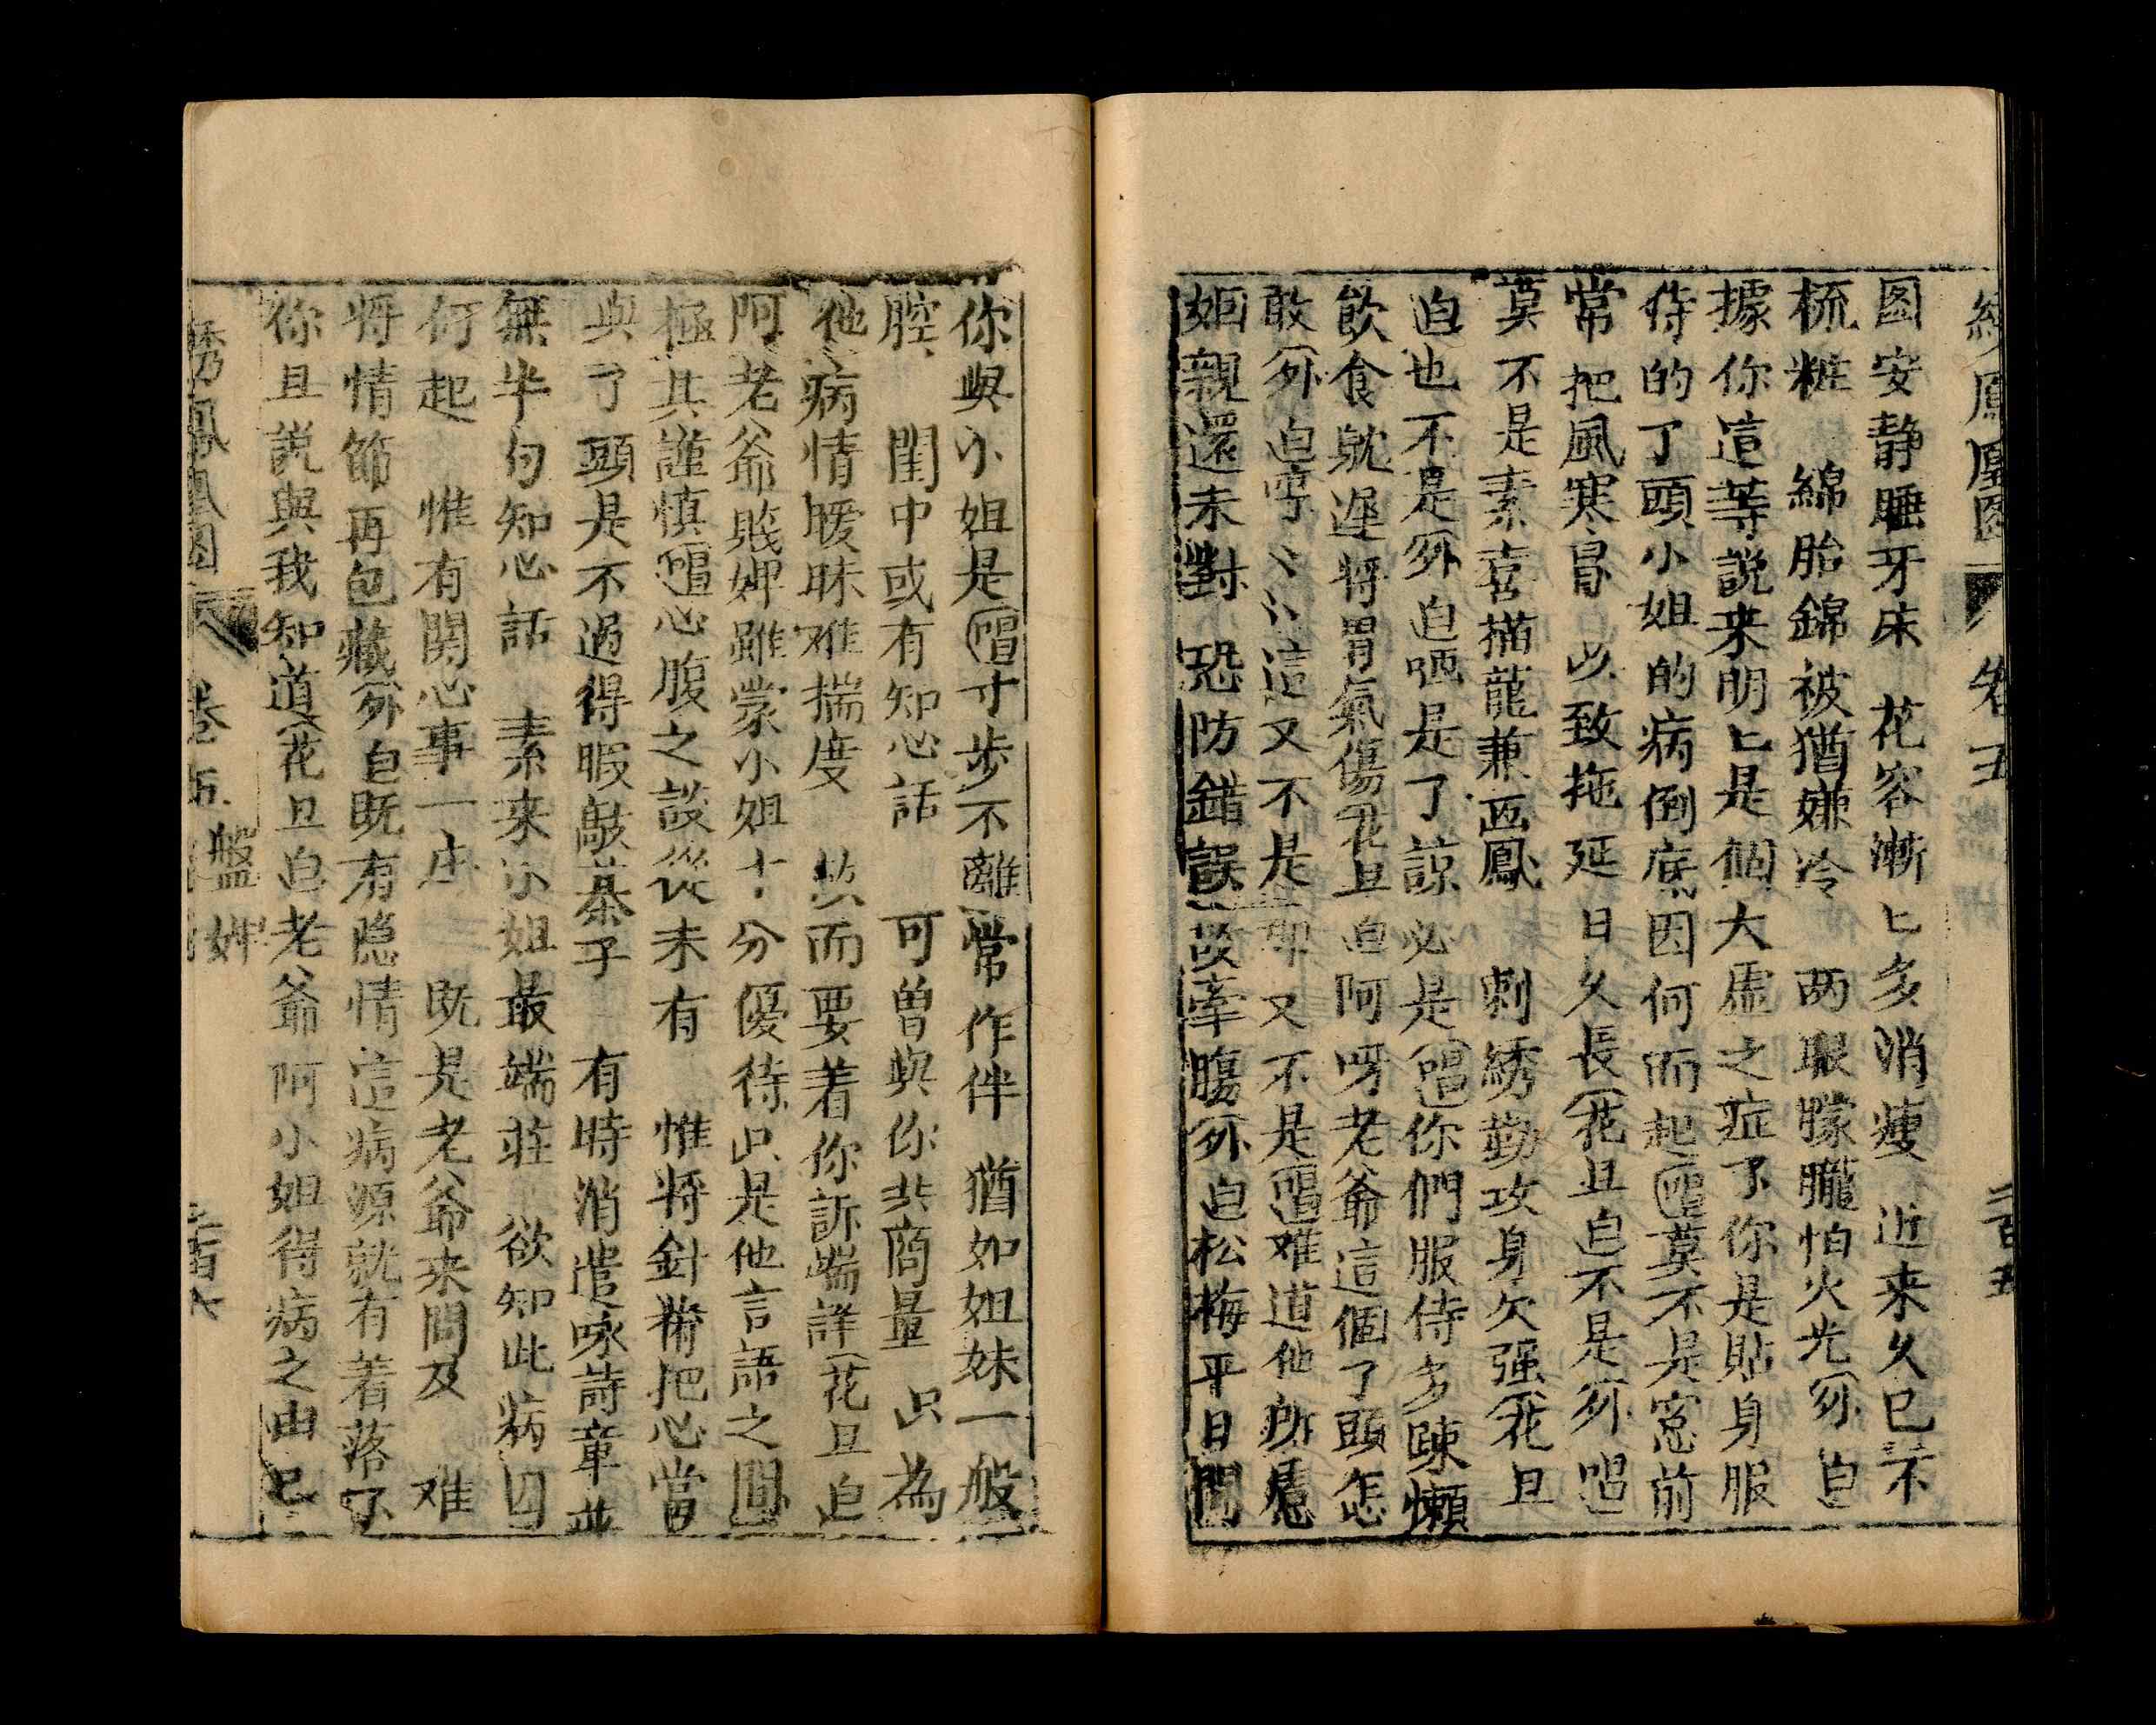 綉鳳凰图 卷五 二百五
图安静睡牙床 花容漸匕多消瘦 近来久已不
梳粧 綿胎錦被猶嫌冷 两眼朦朧怕火光外白
據你這等說来明匕是個大虛之症了你是貼身服
侍的了頭小姐的病倒底因何而起唱莫不是窓前
常把風寒冐 以致拖延日久長花旦白不是外唱
莫不是素喜描龍兼画鳳 刺綉勤攻身欠强花旦
白也不是外白哂是了諒必是唱你們服侍多踈懶
飲食躭遲将胃氣傷花旦白阿呀老爺這個了頭怎
敢外白㝍〻〻這又不是 又不是唱难道他所慮
姻親還未對 恐防錯誤故牽腸外白松梅平日間
你與小姐是唱寸步不離常作伴 猶如姐妹一般
腔 閨中或有知心話 可曽與你共商量 只為
他病情曖昧难揣度 故而要着你訴端詳花旦白
阿老爺賤婢雖蒙小姐十分優待只是他言語之間
極其謹慎唱心腹之談從未有 惟将針黹把心當
與了頭是不過得暇敲棊子 有時消遣咏詩章並
無半句知心話 素来小姐最端莊 欲知此病因
何起 惟有関心事一庄 既是老爺来問及 难
将情節再包藏外白既有隐情這病源就有着落了
你且説與我知道花旦白老爺阿小姐得病之由已
綉鳳凰図 卷五 盤婢 二百六